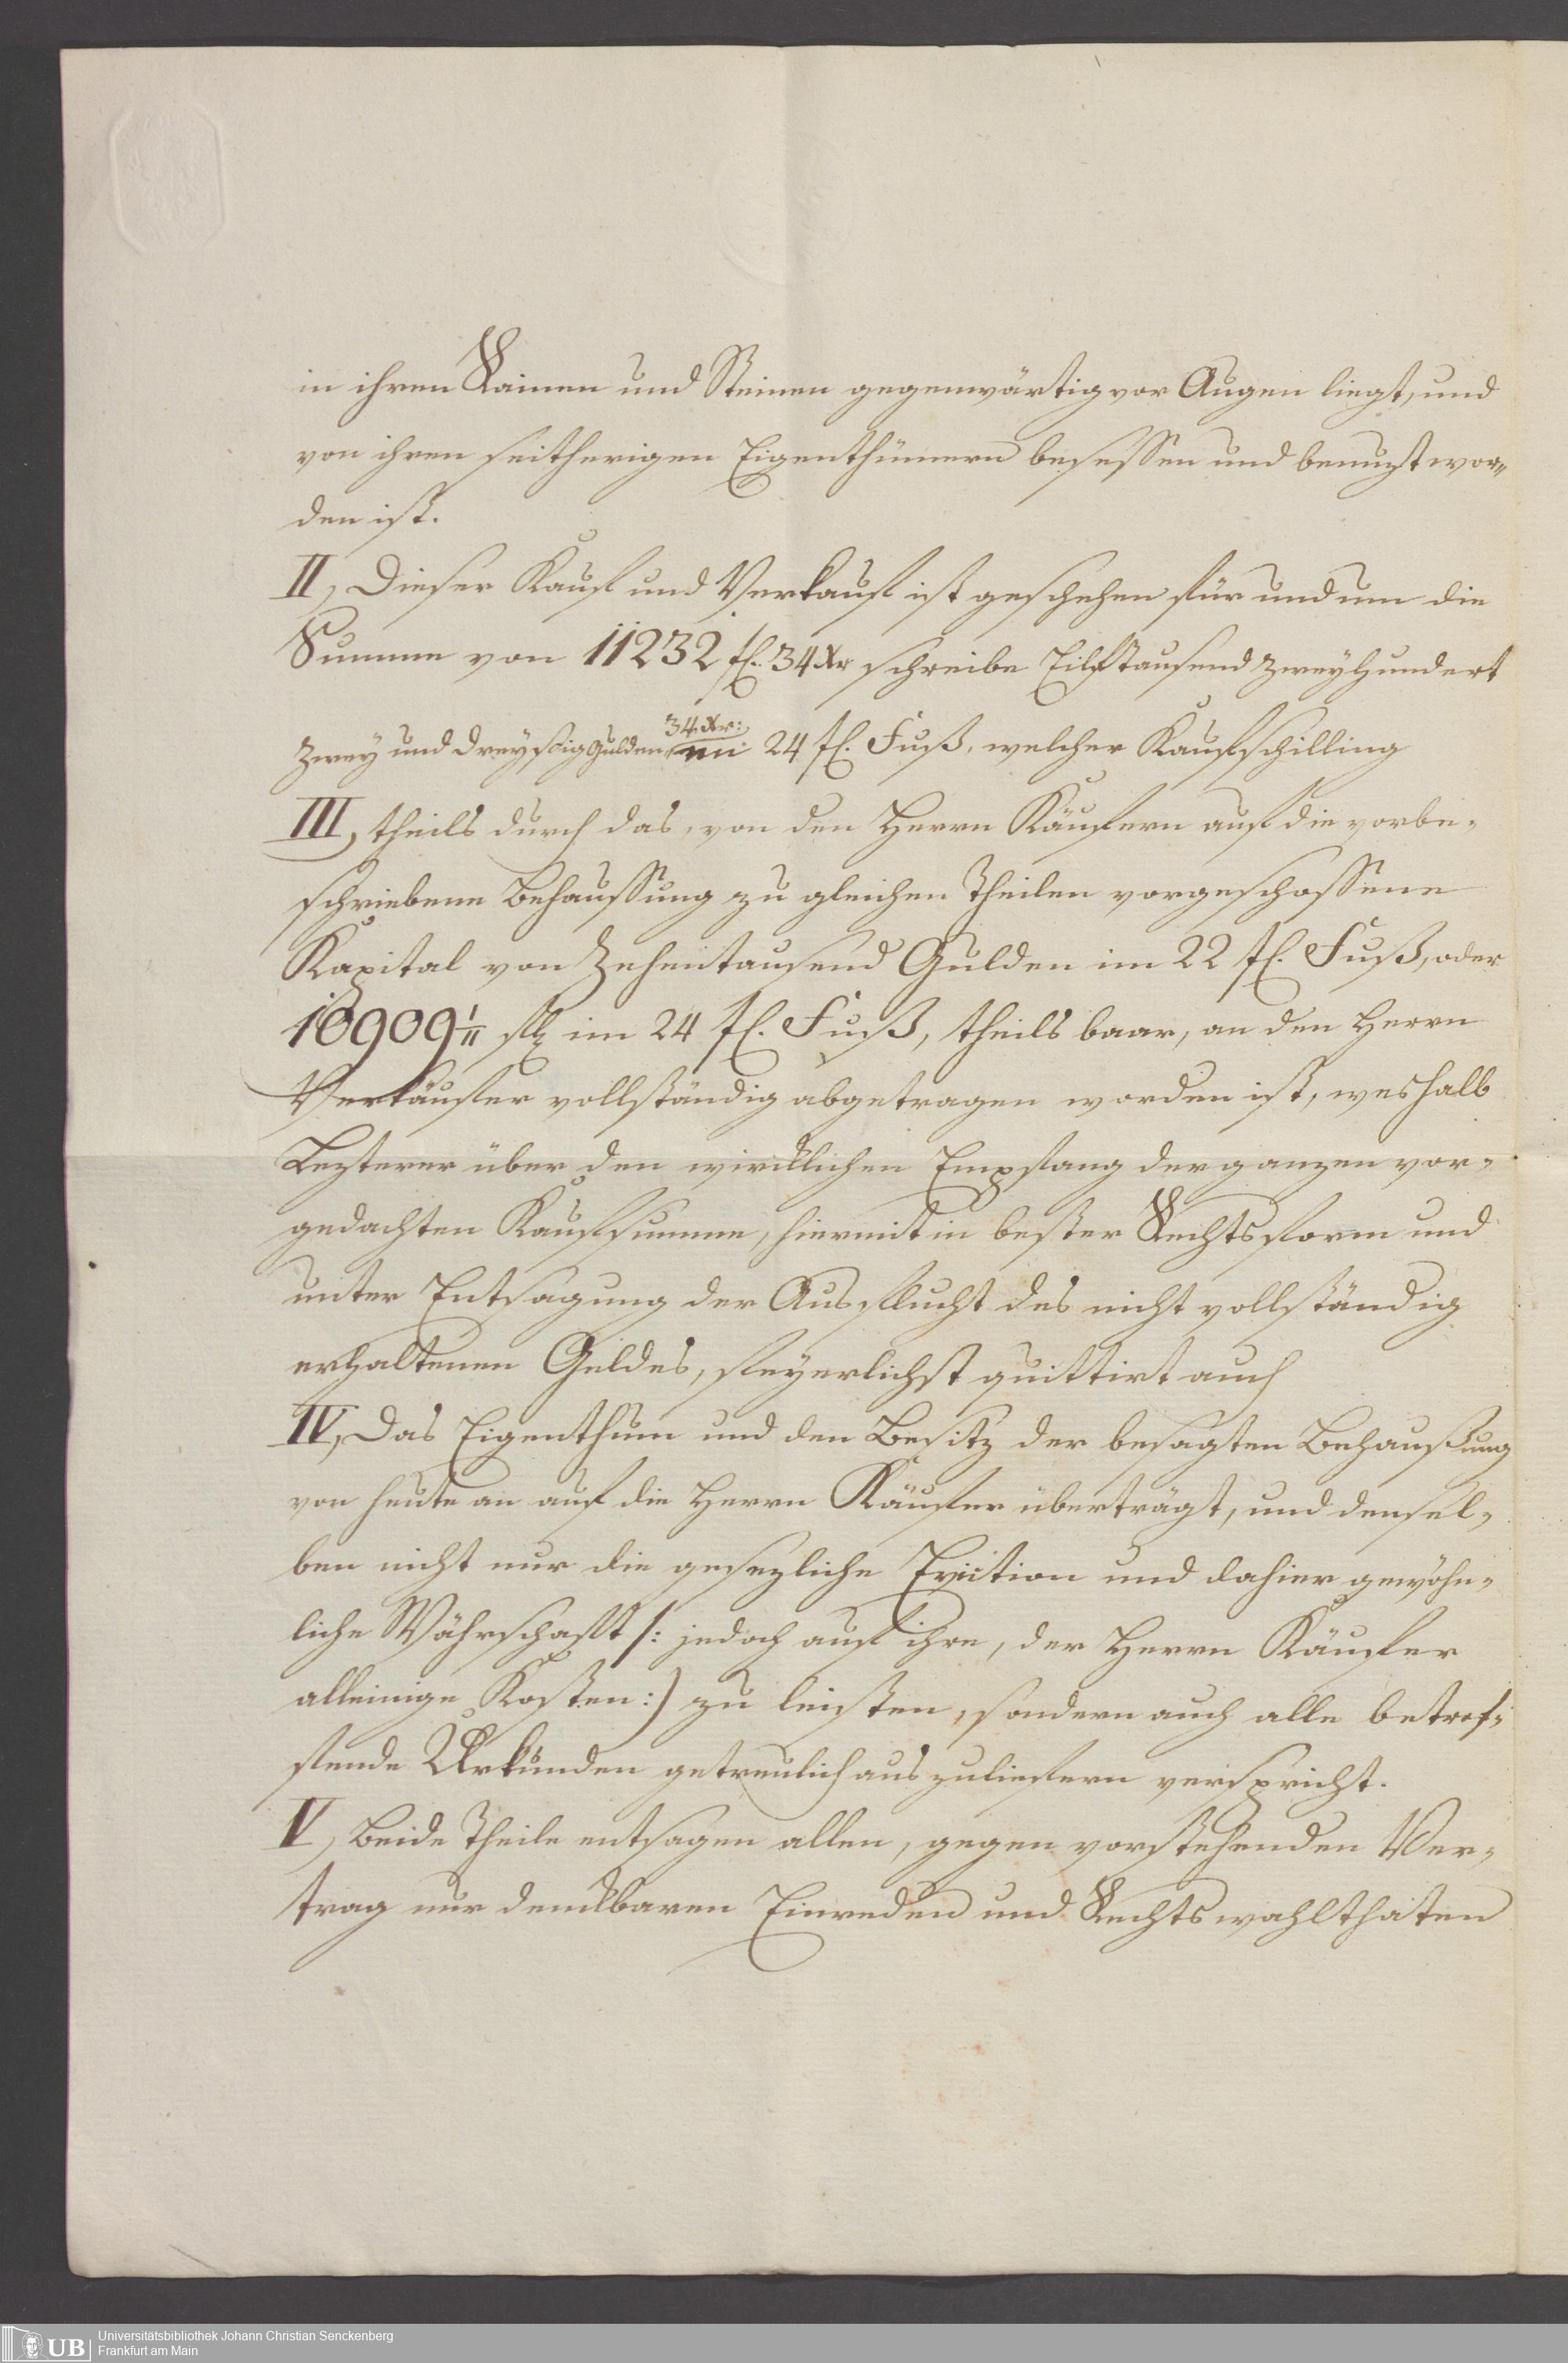 in ihren Rainen und Steinen gegenwärtig vor Augen liegt, und
von ihren seitherigen Eigenthümern besessen und benuzt wor„
den ist.
II, Dieser Kauf und Verkauf ist geschehen für und um die
Summe von 11232 fl. 34 Xr schreibe Eilftausend zweyhundert
34. Xr:
zwey und dreyssig Gulden im 24 fl. Fuß, welcher Kaufschilling
III, theils durch das, von den Herrn Käufern auf die vorbe„
schriebene Behaussung zu gleichen Theilen vorgeschossene
Kapital von Zehentausend Gulden im 22 fl. Fuß, oder
10909 1/11 fl im 24 fl. Fuß, theils baar, an den Herrn
Verkäufer vollständig abgetragen worden ist, weshalb
Lezterer über den wircklichen Empfang der ganzen vor„
gedachten Kaufsumme, hiermit in bester Rechtsform und
unter Entsagung der Ausflucht des nicht vollständig
erhaltenen Geldes, feyerlichst quittirt auch
IV, Das Eigenthum und den Besitz der besagten Behaußung
von heute an auf die Herrn Käufer überträgt, und densel„
ben nicht nur die gesezliche Eviction und dahier gewöhn„
liche Währschaft /: jedoch auf ihre, der Herrn Käufer
alleinige Kosten :/ zu leisten, sondern auch alle betref„
fende Urkunden getreulich auszuliefern verspricht.
V, Beide Theile entsagen allen, gegen vorstehenden Ver„
trag nur denckbaren Einreden und Rechtswohlthaten
UB Universitätsbibliothek Johann Christian Senckenberg
Frankfurt am Main